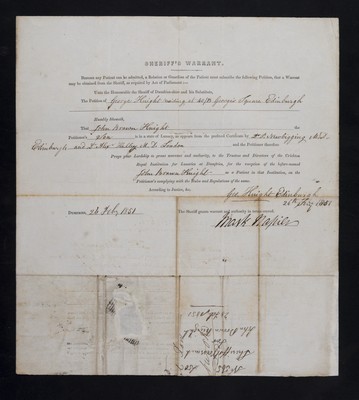 SHERIFF'S WARRANT.
BEFORE any Patient can be admitted, a Relation or Guardian of the Patient must subscribe the following Petition, that a Warrant
may be obtained from the Sheriff, as required by Act of Parliament:—
Unto the Honourable the Sheriff of Dumfries-shire and his Substitute,
The Petition of George Knight residing at George Square Edinburgh
Humbly Sheweth,
That John Brown Knight the
Petitioner's is in a state of Lunacy, as appears from the prefixed Certificate by Newbigging M.D.
Edinburgh and Dr Alexr Halley M.D. London and the Petitioner therefore
Prays your Lordship to grant warrant and authority, to the Trustees and Directors of the Crichton
Royal Institution for Lunatics at Dumfries, for the reception of the before-named
John Brown Knight as a Patient in that Institution, on the
Petitioner's complying with the Rules and Regulations of the same.
According to Justice, &c.
Geo. Knight Edinburgh
26th Feby 1851
DUMFRIES, 26 Feby 1851
The Sheriff grants warrant and authority as above craved.
Mark Napier
Sheriff's Warrant
For
John Brown Knight